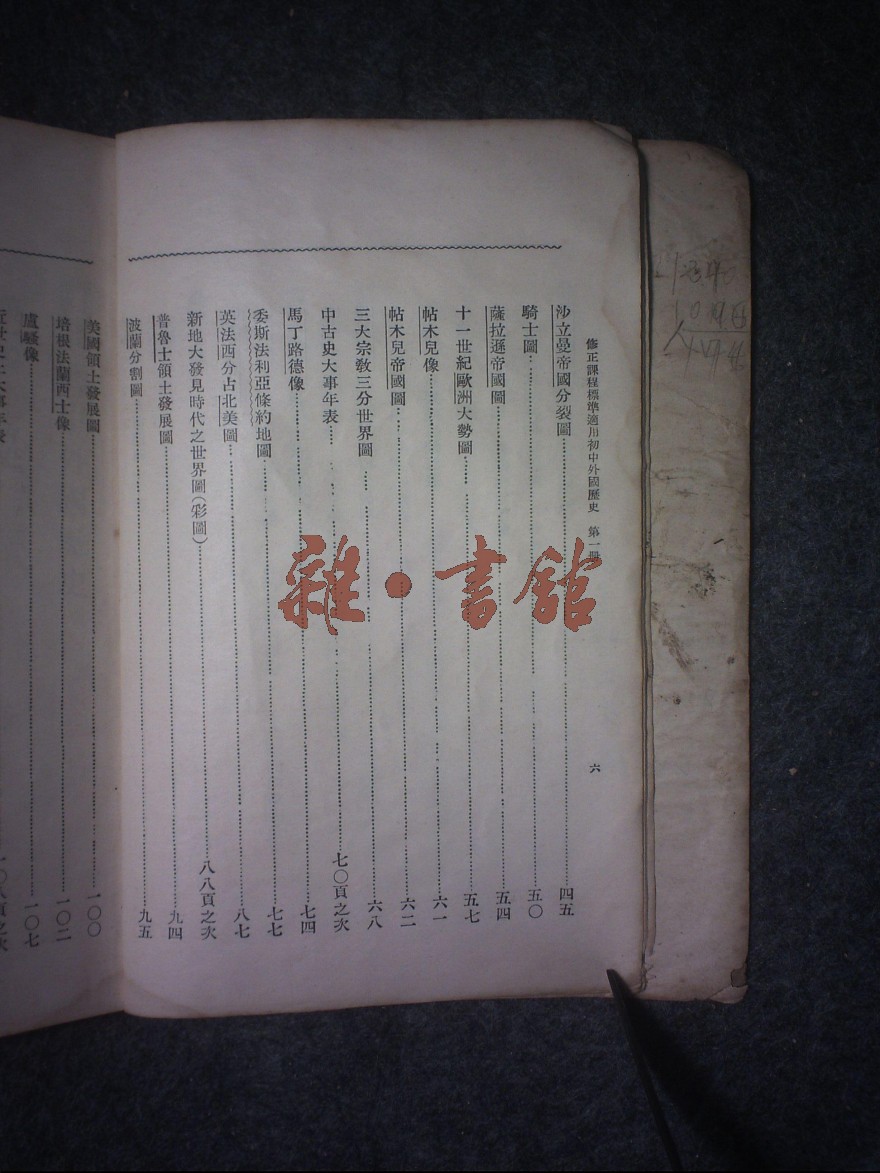 修正課程標準適用初中外國歷史 第一册
六
沙立曼帝國分裂圖 四五
騎士圖 五〇
薩拉遜帝國圖 五四
十一世紀歐洲大勢圖 五七
帖木兒像 六一
帖木兒帝國圖 六二
三大宗教三分世界圖 六八
中古史大事年表 七〇頁之次
馬丁路德像 七四
委斯法利亞條約地圖 七七
英法西分占北美圖 八七
新地大發見時代之世界圖(彩圖) 八八頁之次
普魯士領土發展圖 九四
波蘭分割圖 九五
美國領土發展圖 一〇〇
培根法蘭西士像 一〇二
盧騷像 一〇七
近世史大事年表 一〇八頁之次
雜·書館